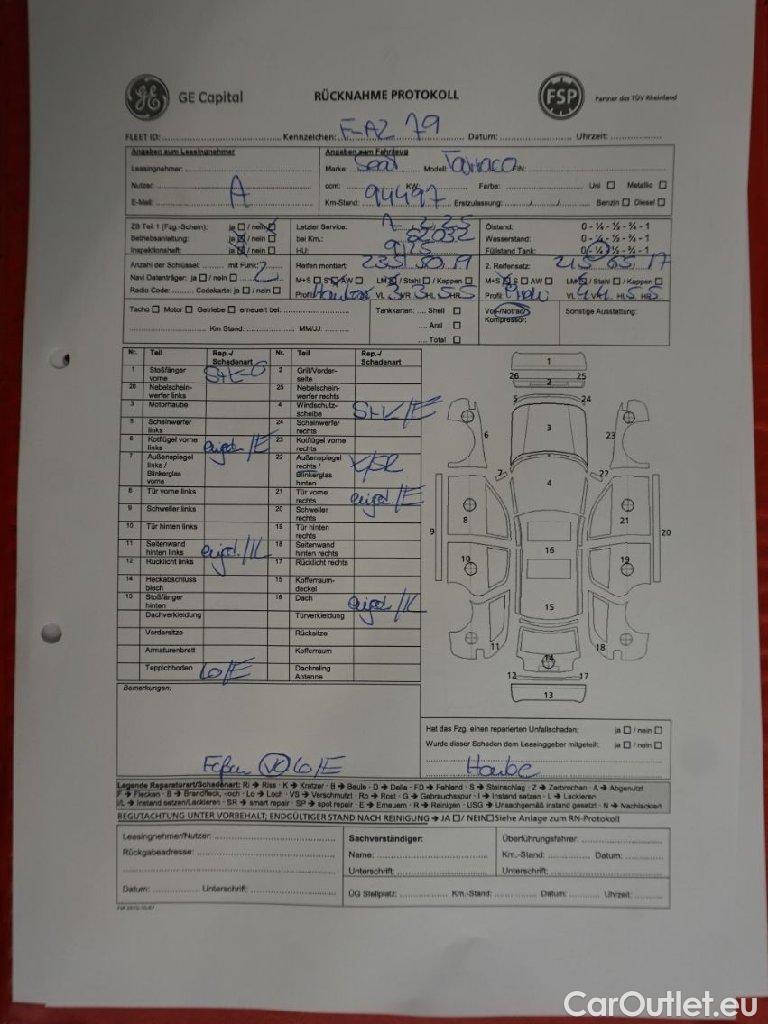 GE Capital RÜCKNAHME PROTOKOLL FSP Partner des TÜV Rheinland
FLEET ID: Kennzeichen: F-AZ 79 Datum: Uhrzeit:
Angaben zum Leasingnehmer Angaben zum Fahrzeug
Leasingnehmer: Marke: Seat Modell: Tarraco
Nutzer: A ccm: KW: Farbe: Uni Metallic
E-Mail: Km-Stand: 94497 Erstzulassung: Benzin Diesel
ZB Teil 1 (Fzg.-Schein): ja / nein Letzter Service: Ölstand: 0 - ¼ - ½ - ¾ - 1
Betriebsanleitung: ja / nein bei Km.: 62032 Wasserstand: 0 - ¼ - ½ - ¾ - 1
Inspektionsheft: ja / nein HU: 9/25 Füllstand Tank: 0 - ¼ - ½ - ¾ - 1
Anzahl der Schlüssel: mit Funk: 2 Reifen montiert: 235 50 19 2. Reifensatz: 215 65 17
Navi Datenträger: ja / nein M+S S AW LM / Stahl / Kappen M+S S AW LM / Stahl / Kappen
Radio Code: Codekarte: ja / nein Profil: VL VR HL HR Profil: VL VR HL HR
Tacho Motor Getriebe erneuert bei: Tankkarten: Shell Vor-/Notrad Sonstige Ausstattung:
Kompressor:
Aral
Km Stand: MM/JJ: Total
Nr. Teil Rep.-/ Schadenart Nr. Teil Rep.-/ Schadenart
1 Stoßfänger vorne 2 Grill/Vorderseite
26 Nebelscheinwerfer links 25 Nebelscheinwerfer rechts
3 Motorhaube 4 Windschutzscheibe St+K/E
5 Scheinwerfer links 24 Scheinwerfer rechts
6 Kotflügel vorne links 23 Kotflügel vorne rechts
7 Außenspiegel links / Blinkerglas vorne 22 Außenspiegel rechts / Blinkerglas hinten K/SR
8 Tür vorne links 21 Tür vorne rechts
9 Schweller links 20 Schweller rechts
10 Tür hinten links 19 Tür hinten rechts
11 Seitenwand hinten links 18 Seitenwand hinten rechts
12 Rücklicht links 17 Rücklicht rechts
14 Heckabschluss blech 15 Kofferraumdeckel
13 Stoßfänger hinten 16 Dach
Dachverkleidung Türverkleidung
Vordersitze Rücksitze
Armaturenbrett Kofferraum
Teppichboden Lo/E Dachreling Antenne
1
26 25
2
5 24
3
6 23
7 22
4
8 21
9 20
16
10 19
15
11 18
14
12 17
13
Bemerkungen:
Lo/E
Hat das Fzg. einen reparierten Unfallschaden: ja / nein
Wurde dieser Schaden dem Leasinggeber mitgeteilt: ja / nein
Haube
Legende Reparaturart/Schadenart: Ri → Riss · K → Kratzer · B → Beule · D → Delle · FD → Fehlend · S → Steinschlag · Z → Zerbrochen · A → Abgenutzt
F → Flecken · B → Brandfleck, -loch · Lo → Loch · VS → Verschmutzt · Ro → Rost · G → Gebrauchsspur · I → Instand setzen · L → Lackieren
I/L → Instand setzen/Lackieren · SR → smart repair · SP → spot repair · E → Erneuern · R → Reinigen · USG → Unsachgemäß instand gesetzt · N → Nachlackiert
BEGUTACHTUNG UNTER VORBEHALT; ENDGÜLTIGER STAND NACH REINIGUNG → JA / NEIN Siehe Anlage zum RN-Protokoll
Leasingnehmer/Nutzer: Sachverständiger: Überführungsfahrer:
Rückgabeadresse: Name: Km.-Stand: Datum:
Unterschrift: Unterschrift:
Datum: Unterschrift: ÜG Stellplatz: Km.-Stand: Datum: Uhrzeit:
CarOutlet.eu